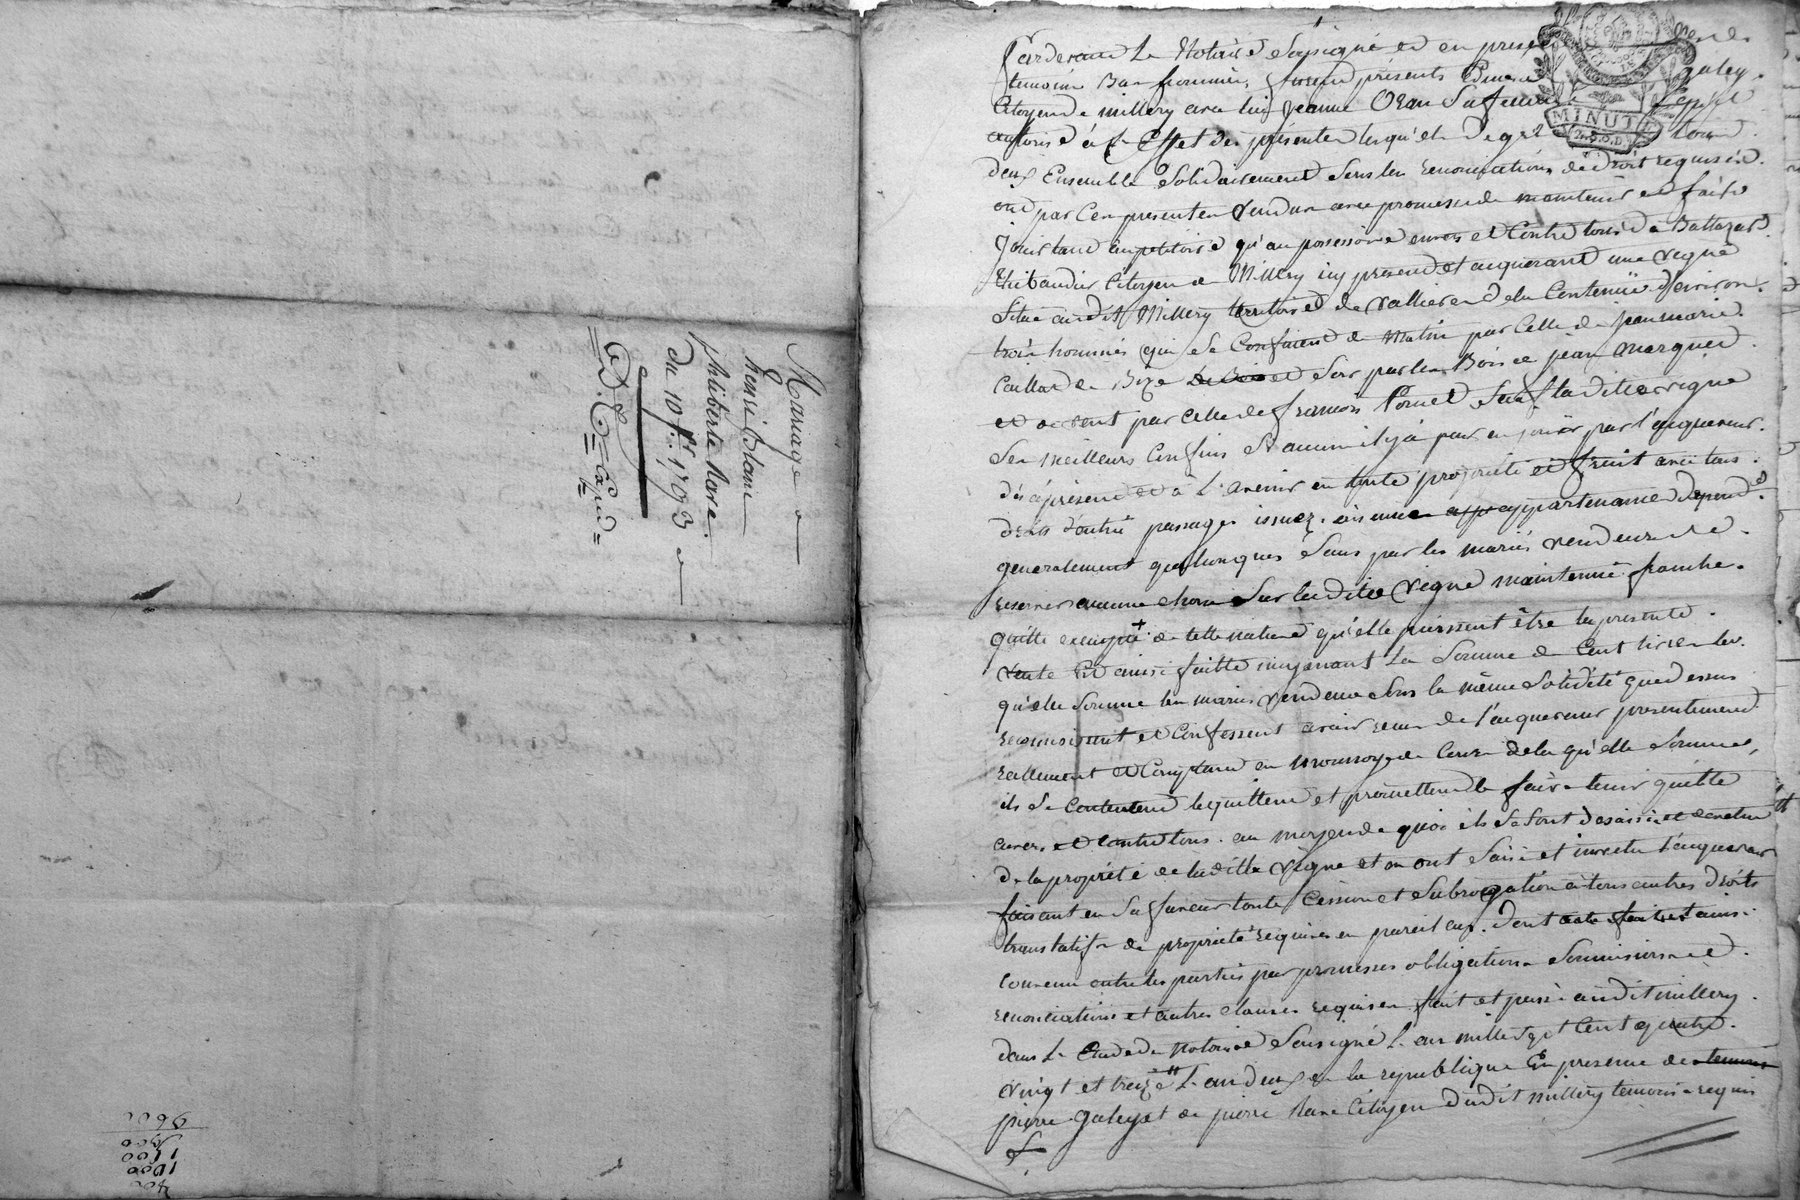 Mariage
henri Blanc
philiberte Rare.
du 10 f.r 1793
400
1000
1500
9600
MINUTE
Pardevant Le Notaire Soussigné et en
temoins Bas nommés, furent présents
Citoyen de millery avec lui Jeanne Oran Sa femme
autorisé à l'Effet des présentes lesquels de gré
deux Ensemble Solidairement Sous les renonciations de droit requises
ont par Ces presentes vendu avec promesse de maintenir et faire
Jouir tant au petitoire qu'au possessoire envers et Contre tous à Baltazard
Thibaudier Citoyen de Millery icy present et acquerant une vigne
Situe audit Millery territoire de vallieres de la Contenüe d'environ
trois hommés qui Se Confinent de Matin par Celle de jean marie
Caillat de Bize et Soir par les Bois de jean marguet
et de vent par Celle de françois Pornet Sauf ladite vigne
Ses meilleurs Confins Si aucun il y a pour en jouir par l'acquereur
dés apresent et à L'avenir en toute propriété et fruit avec tous
droits d'entrée passages issuez aisances appartenances depend.es
generalement quelconques Sans par les mariés vendeurs Se
reserver aucune chose Sur ladite vigne maintenue franche
quitte exempte de telle nature qu'elle puissent être la presente
vente Est ainsi faitte moyenant La Somme de Cent livres
qu'elle Somme les mariés vendeurs Sous la même Solidité que dessus
reconnoissent et Confessent avoir recu de l'acquereur presentement
reellement et Comptant en monnoye de Cours de la qu'elle Somme
ils Se Contentent le quittent et promettent le faire tenir quitte
envers et Contre tous. au moyen de quoi ils Se Sont désaisis et devetus
de la propriété de laditte vigne et en ont Saisi et investu l'acquereur
faisant en Sa faveur toute Cession et Subrogation à tous autres droits
translatifs de propriété requises en pareil cas. dont acte fait et ainsi
convenu entre les parties par promesses obligations Soumissions et
renonciations et autres clauses requises fait et passé audit millery
dans L'Etude du Notaire Soussigné L'an mille Sept Cent quatre
vingt et treize L'an deux de la republique En presence de
pierre galey et de pierre Rare Citoyen dudit millery temoins requis